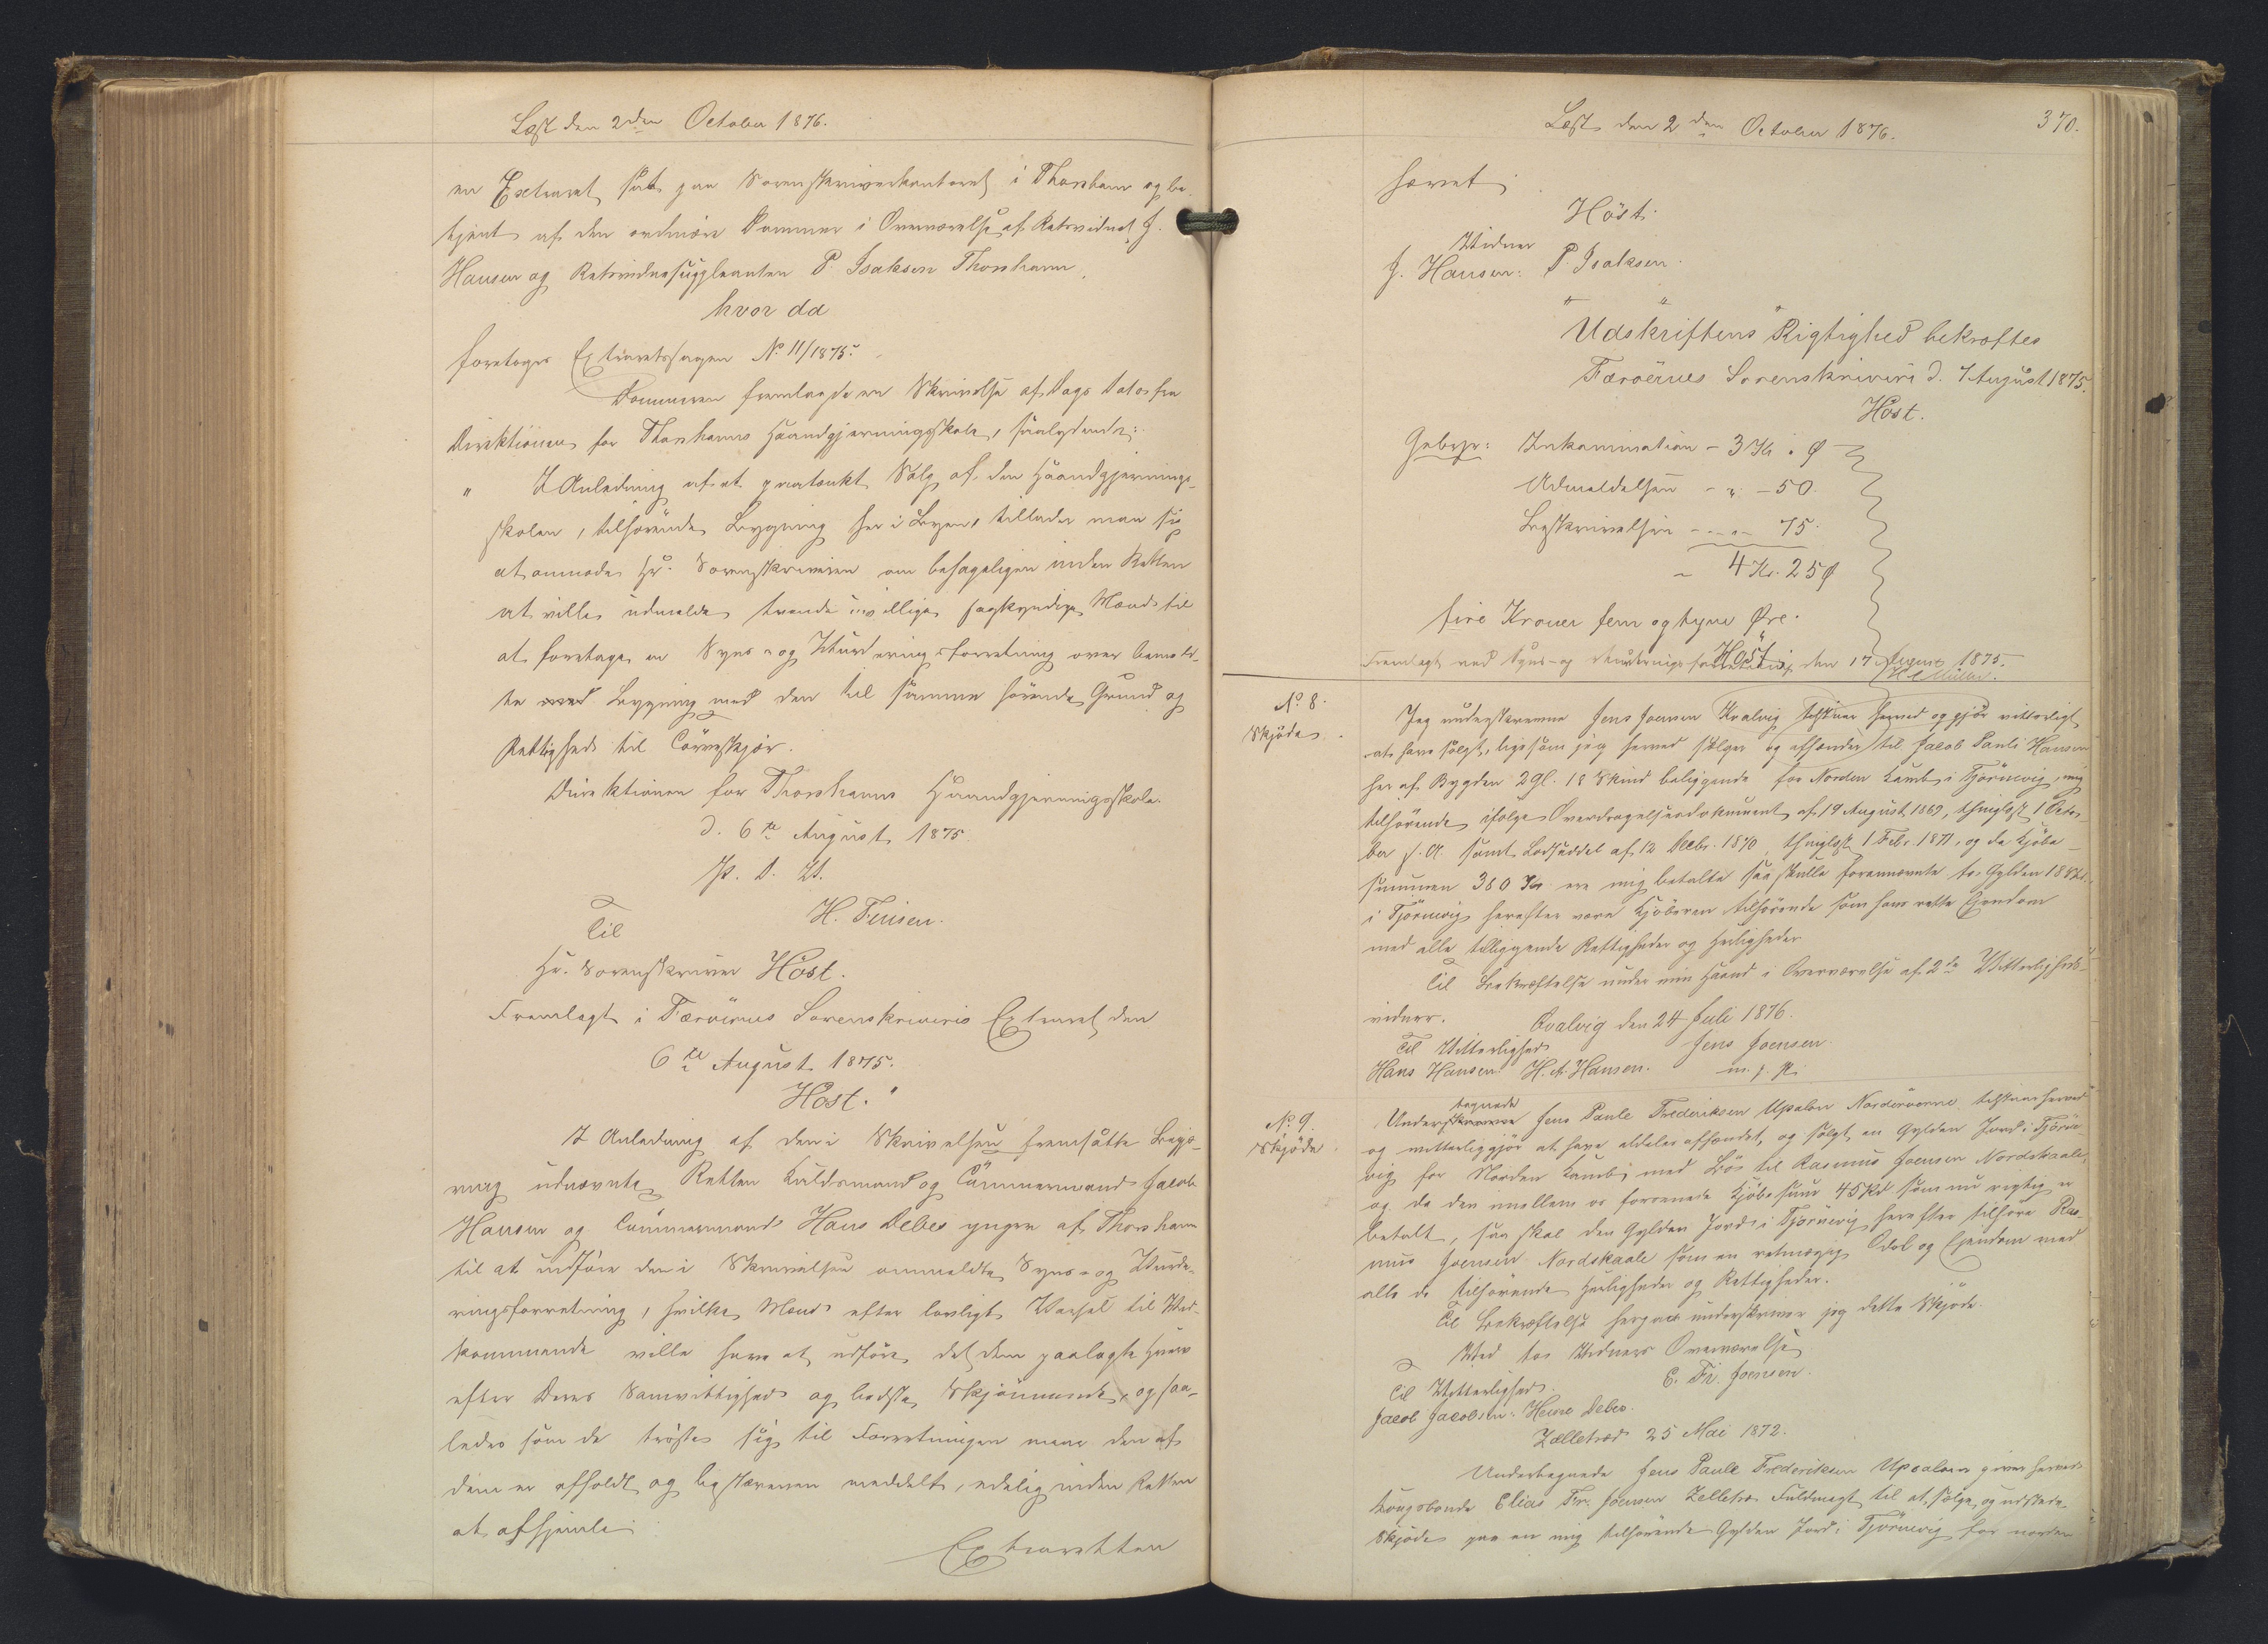 Læst den 2den October 1876.
en Extraret sat paa Sorenskriverkontoret i Thorshavn og be-
tjent af den ordinære Dommer i Overværelse af Retsvidnet J.
Hansen og Retsvidnesuppleanten P. Isaksen Thorshavn,
hvor da
foretoges Extraretssagen No 11/1875.
Dommeren fremlagde en Skrivelse af Dags Dato fra
Direktionen for Thorshavns Haandgjerningsskole, saalydende:
" I Anledning af et paatænkt Salg af den Haandgjernings-
skolen, tilhørende Bygning her i Byen, tillader man sig
at anmode Hr. Sorenskriveren om behageligen inden Retten
at ville udmelde tvende uvillige sagkyndige Mænd til
at foretage en Syns- og Vurderingsforretning over bemeld-
te Bygning med den til samme hørende Grund og
Rettighed til Tørveskjær.
Direktionen for Thorshavns Haandgjerningsskole.
d. 6te August 1875.
P. D. V.
H. Finsen.
Til
Hr. Sorenskriver Höst.
Fremlagt i Færöernes Sorenskriveris Extraret den
6te August 1875.
Höst."
I Anledning af den i Skrivelsen fremsatte Begjæ-
ring udnævnte Retten Kuldsmand og Tömmermand Jacob
Hansen og Tömmermand Hans Debes yngre af Thorshavn
til at udføre den i Skrivelsen ommeldte Syns- og Vurde-
ringsforretning, hvilke Mænd efter lovligt Varsel til Ved-
kommende ville have at udføre det dem paalagte Hverv
efter Deres Samvittighed og bedste Skjönnende, og saa-
ledes som de trøste sig til Forretningen naar den af
dem er afholdt og beskreven meddelt, edelig inden Retten
at afhjemle
Extraretten
Læst den 2den October 1876.
370.
hævet
Höst.
Vidner
J. Hansen: P. Isaksen.
" " "
Udskriftens Rigtighed bekræftes
Færöernes Sorenskriveri d. 7 August 1875.
Höst.
Gebyr: Inkamination - 3 Kr. " Ø
Udmeldelsen - " - 50.
Beskrivelsen - " - 75.
- 4 Kr. 25 Ø
fire Kroner fem og tyve Øre.
Höst
Fremlagt ved Syns- og Vurderingsforretning den 17 August 1875.
No 8.
Skjöde.
Jeg underskrevne Jens Joensen Kvalvig tilstaaer herved og gjør vitterligt
at have solgt, ligesom jeg herved sælger og afhænder til Jacob Pauli Hansen
her af Bygden 2 Gl. 18 Skind beliggende for Norden Kamb i Tjörnevig, mig
tilhørende ifølge Overdragelsesdokument af 19 August 1869, thinglæst 1 Octo-
ber s. A. samt Lodseddel af 12 Decbr. 1870, thinglæst 1 Febr. 1871, og da Kjöbe-
summen 380 Kr. ere mig betalte saa skulle forannævnte to Gylden 18 Skd.
i Tjörnevig herefter være Kjöberen tilhørende som hans rette Ejendom
med alle tilliggende Rettigheder og Herligheder.
Til Bekræftelse under min Haand i Overværelse af 2de Vitterligheds-
vidner.
Qvalvig den 24 Juli 1876.
Til Vitterlighed
Jens Joensen
Hans Hansen. H. A. Hansen.
m. f. P.
No 9.
Skjöde.
tegnede
Underskrevne Jens Paule Frederiksen Upsalon Norderöerne tilstaar herved
og vitterliggjør at have aldeles afhændet, og solgt, en Gylden Jord i Tjörne-
vig for Norden Kamb, med Bös til Rasmus Joensen Nordskaale,
og da den imellem os forenede Kjöbesum 45 Rd som nu rigtig er
betalt, saa skal den Gylden Jord i Tjörnevig herefter tilhøre Ras-
mus Joensen Nordskaale som en retmæsig Odel og Ejendom med
alle de tilhørende Herligheder og Rettigheder.
Til Bekræftelse herpaa underskriver jeg dette Skjöde
Ved tos Vidners Overværelse
Til Vitterlighed.
E. Fr. Joensen.
Jacob Jacobsen. Heine Debes.
Zelletræd 25 Mai 1872.
Undertegnede Jens Paule Frederiksen Upsalon giver herved
Kongsbonde Elias Fr. Joensen Zelletræ Fuldmagt til at sælge og udstede
Skjöde paa en mig tilhørende Gylden Jord i Tjörnevig for norden